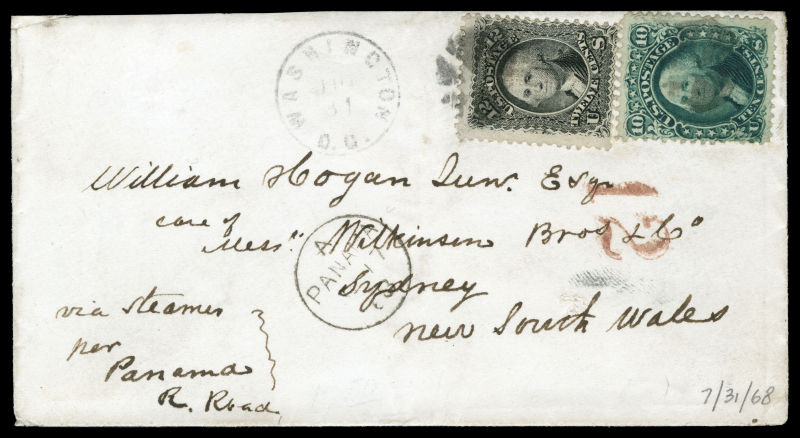 WASHINGTON
JUL
31
D.C.
12 12
U.S. POSTAGE
TWELVE CENTS
U S
10 10
U.S. POSTAGE
TEN CENTS
U S
William Hogan Junr. Esqr
care of
Messrs Wilkinson Bros & Co
Sydney
New South Wales
12
A
PANAMA
17
via steamer
per
Panama
R. Road
7/31/68